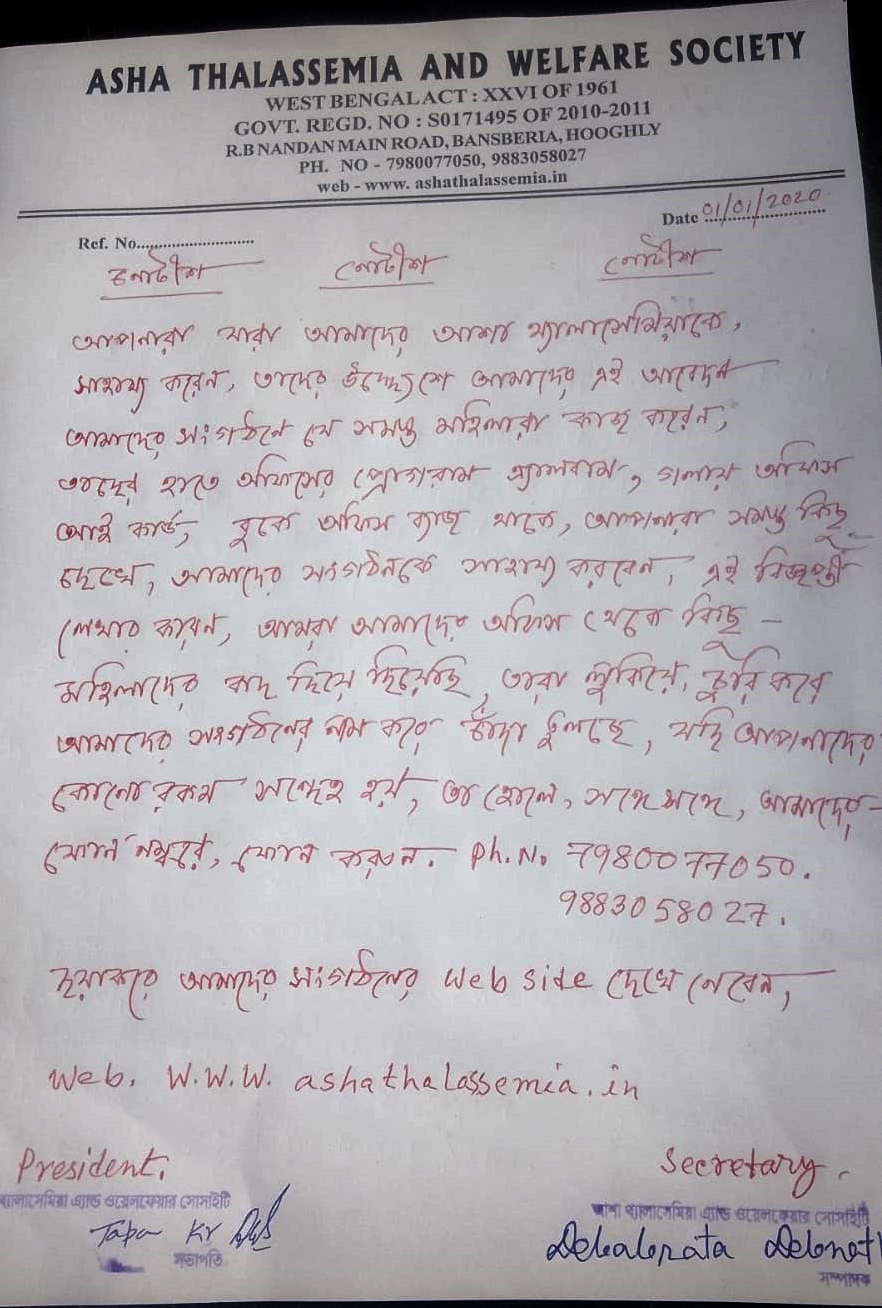 ASHA THALASSEMIA AND WELFARE SOCIETY
WEST BENGAL ACT : XXVI OF 1961
GOVT. REGD. NO : S0171495 OF 2010-2011
R.B NANDAN MAIN ROAD, BANSBERIA, HOOGHLY
PH. NO - 7980077050, 9883058027
web - www. ashathalassemia.in
Date 01/01/2020
Ref. No..........................
নোটীশ নোটীশ নোটীশ
আপনারা যারা আমাদের আশা থ্যালাসেমিয়াকে,
সাহায্য করেন, তাদের উদ্দেশ্যে আমাদের এই আবেদন
আমাদের সংগঠনে যে সমস্ত মহিলারা কাজ করেন,
তাদের হাতে অফিসের প্রোগরাম এ্যালবাম, গলায় অফিস
আই কার্ড, বুকে অফিস ব্যাজ থাকে, আপনারা সমস্ত কিছু
দেখে, আমাদের সংগঠনকে সাহায্য করবেন, এই বিজ্ঞপ্তী
লেখার কারন, আমরা আমাদের অফিস থেকে কিছু -
মহিলাদের বাদ দিয়ে দিয়েছি, তারা লুকিয়ে, চুরি করে
আমাদের সংগঠনের নাম করে চাঁদা তুলছে, যদি আপনাদের
কোনো রকম সন্দেহ হয়, তা হোলে, সঙ্গে সঙ্গে, আমাদের -
ফোন নম্বরে, ফোন করুন. Ph. No 7980077050.
9883058027.
দয়াকরে আমাদের সংগঠনের Web side দেখে নেবেন,
Web. W.W.W. ashathalassemia.in
President. Secretary.
থ্যালাসেমিয়া এ্যান্ড ওয়েলফেয়ার সোসাইটি আশা থ্যালাসেমিয়া এ্যান্ড ওয়েলফেয়ার সোসাইটি
Tapan Kr Das Debabrata Debnath
সভাপতি সম্পাদক